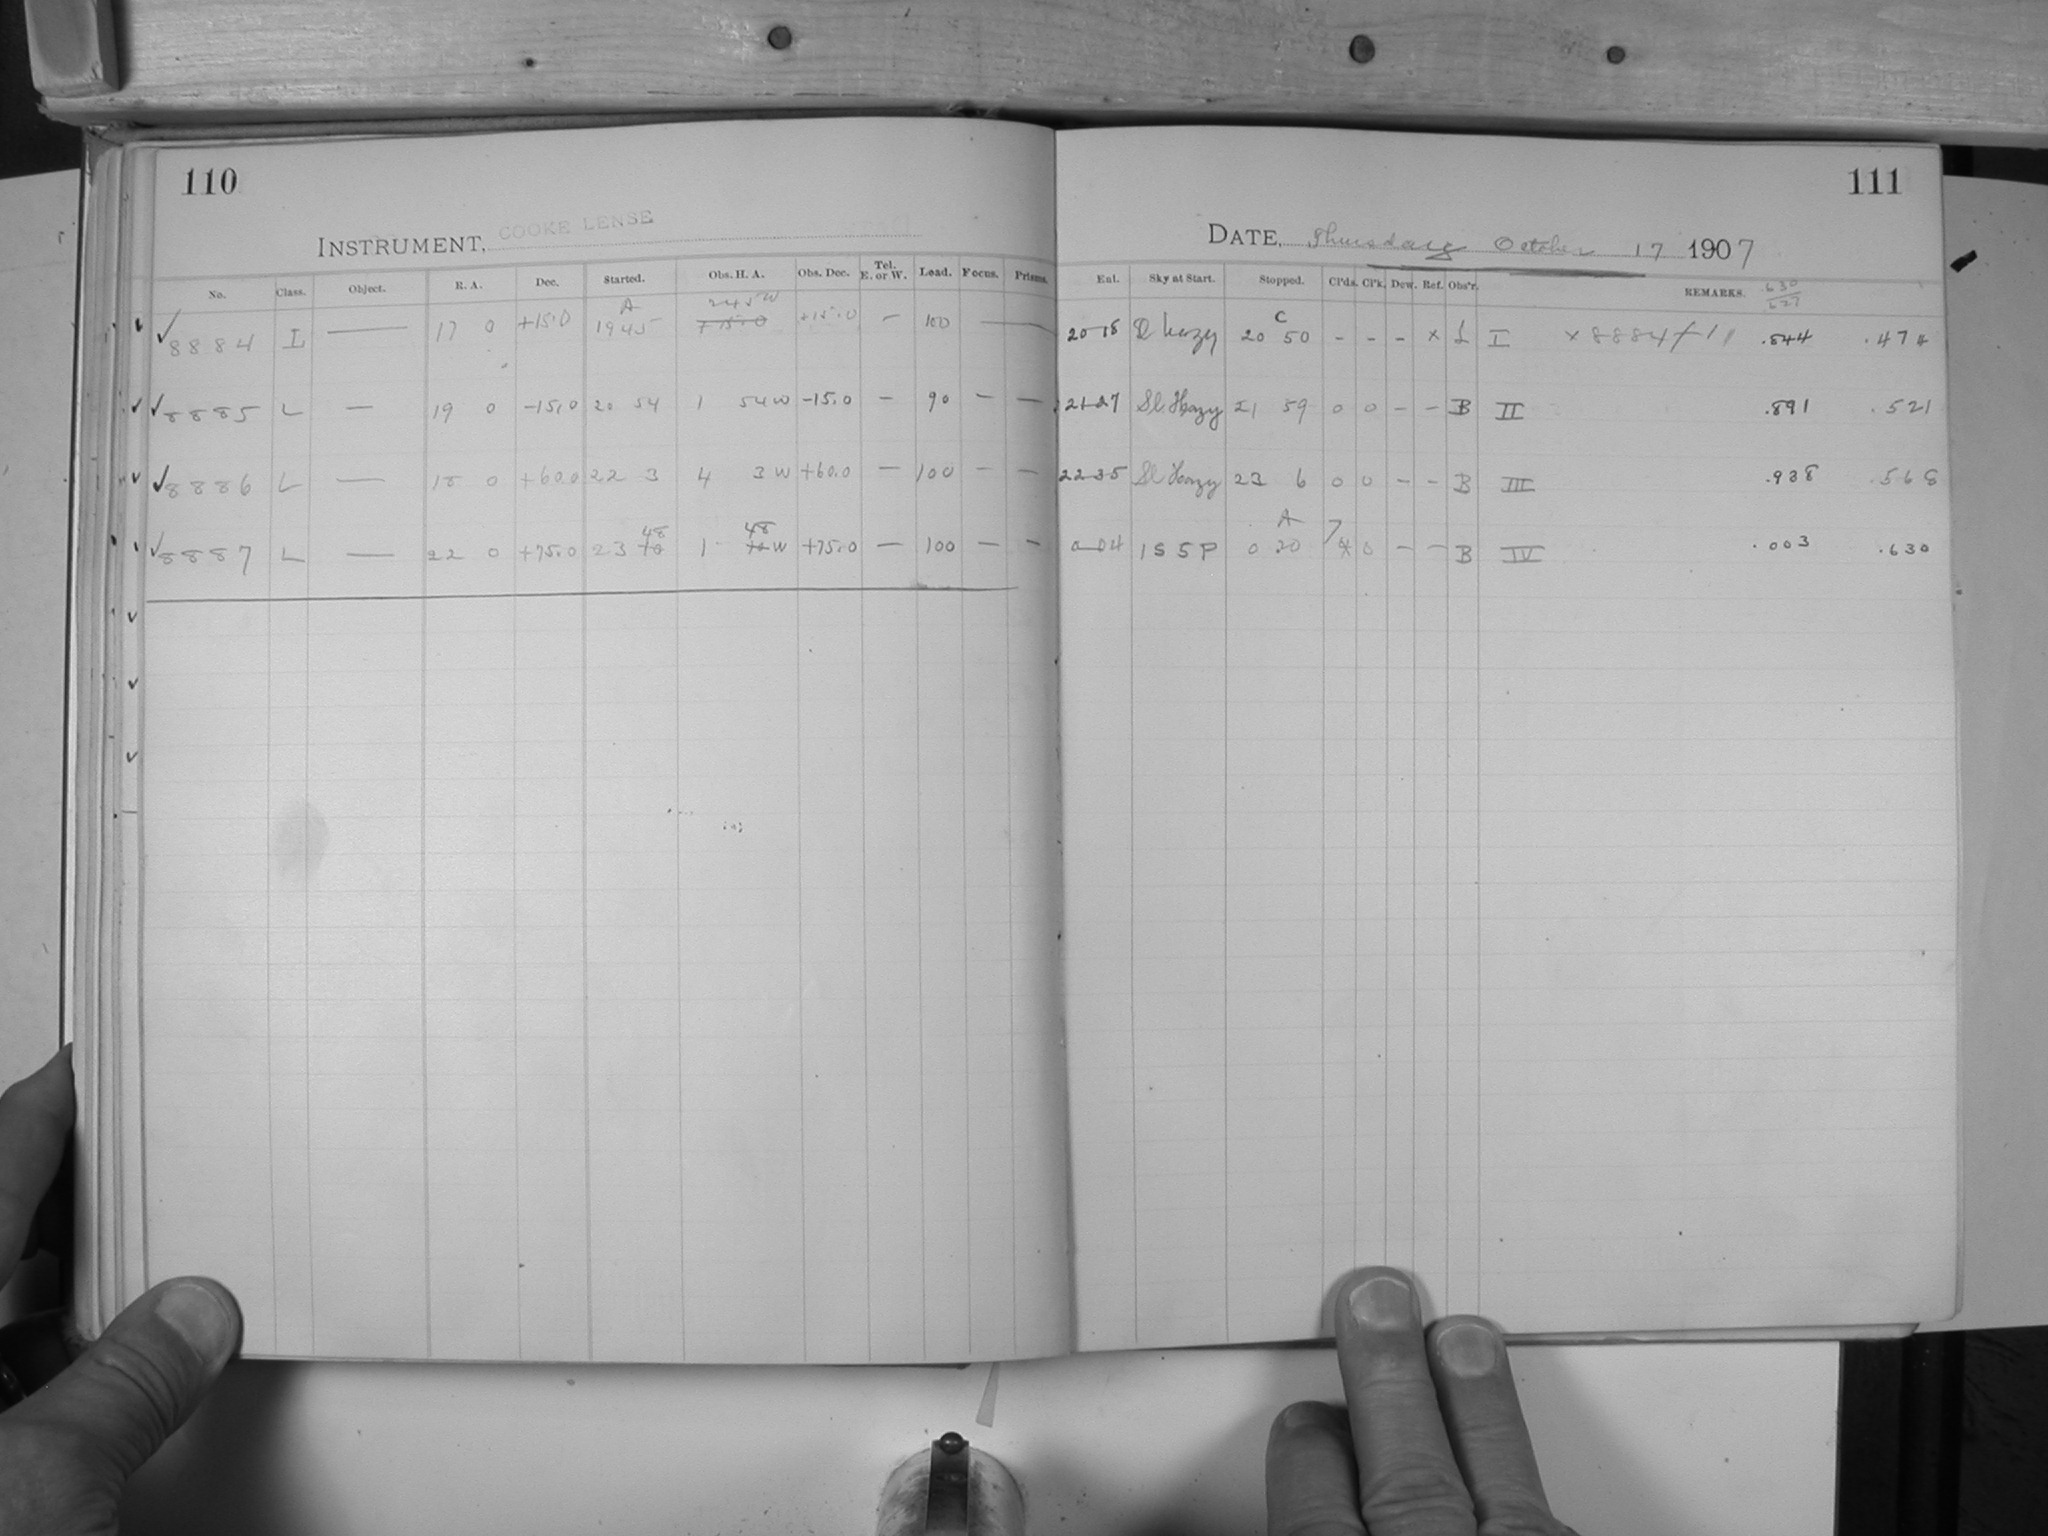 110
INSTRUMENT, COOKE LENSE
No. Class. Object. R. A. Dec. Started. Obs. H. A. Obs. Dec. Tel. E. or W. Load. Focus. Prisms.
A 2 45 W
✓ 8884 L — 17 0 +15.0 19 45 +15.0 +15.0 – 100 —
✓ 8885 L — 19 0 -15.0 20 54 1 54 W -15.0 – 90 – –
✓ 8886 L — 18 0 +60.0 22 3 4 3 W +60.0 – 100 – –
48 48
✓ 8887 L — 22 0 +75.0 23 10 1 10 W +75.0 – 100 – –
111
DATE, Thursday October 17 1907
Enl. Sky at Start. Stopped. Cl'ds. Cl'k. Dew. Ref. Obs'r. REMARKS. 630
627
C
20 18 hazy 20 50 – – – × L I × 8884 .844 .474
21 27 Sl. Hazy 21 59 0 0 – – B II .891 .521
22 35 Sl Hazy 23 6 0 0 – – B III .938 .568
A
0 04 1 S 5 P 0 20 7 0 – – B IV .003 .630